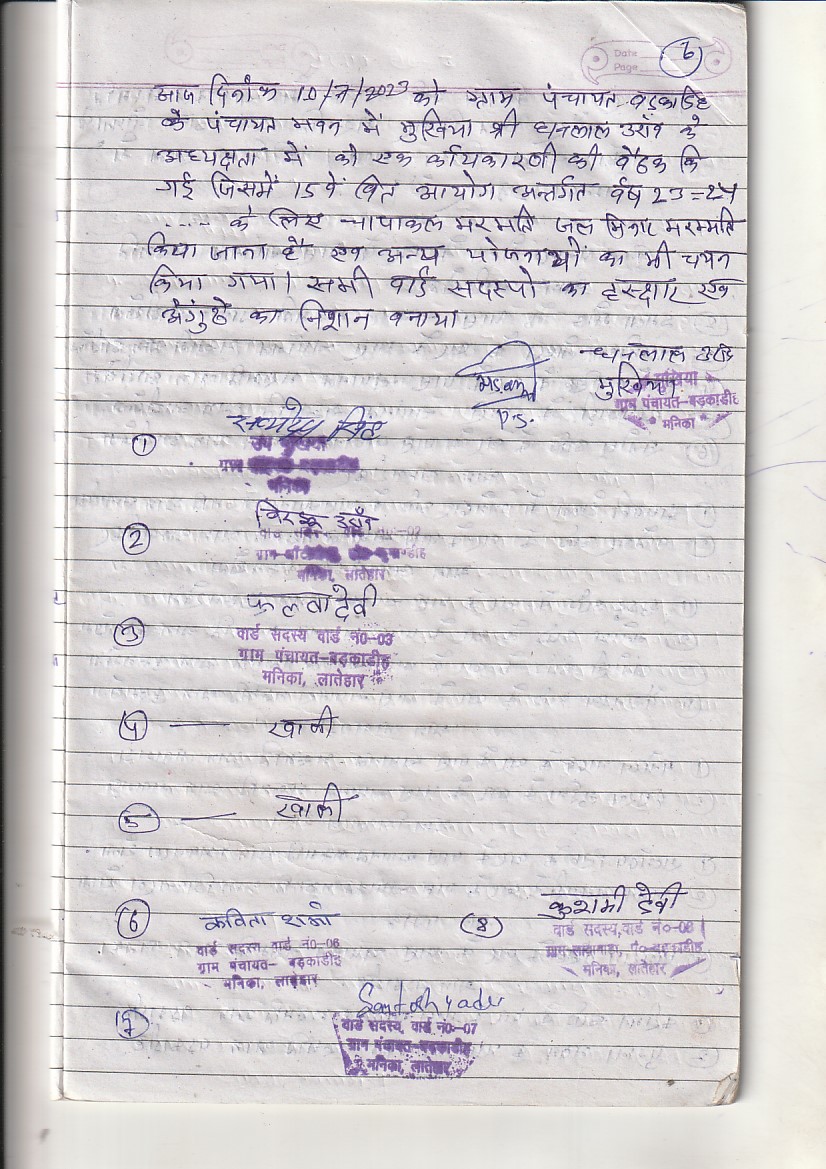 Date
Page
6
आज दिनांक 10/7/2023 को ग्राम पंचायत बड़काडिह
के पंचायत भवन में मुखिया श्री धनलाल उराँव के
अध्यक्षता में की एक कार्यकारणी की बैठक कि
गई जिसमें 15 वें वित आयोग अन्तर्गत वर्ष 23=24
.... के लिए चापाकल मरमति जल मिनार मरम्मति
किया जाना है एवं अन्य योजनाओं का भी चयन
किया गया। सभी वार्ड सदस्यो का हस्क्षार एवं
अंगुठे का निशान बनाया
धनलाल उराँव
मुखिया
मुखिया
ग्राम पंचायत-बड़काडीह
मनिका
P.S.
1
उप मुखिया
ग्राम
मनिका
2
विरझू उराँव
मनिका, लातेहार
3
फलवा देवी
वार्ड सदस्य वार्ड नं0-03
ग्राम पंचायत-बड़काडीह
मनिका, लातेहार
4 — खाली
5 — खाली
6 कविता
वार्ड सदस्य वार्ड नं0-06
ग्राम पंचायत- बड़काडीह
मनिका, लातेहार
(8) कुशमी देवी
वार्ड सदस्य, वार्ड नं०-08
मनिका, लातेहार
7
Santosh yadav
वार्ड सदस्य, वार्ड नं०-07
ग्राम पंचायत-बड़काडीह
मनिका, लातेहार